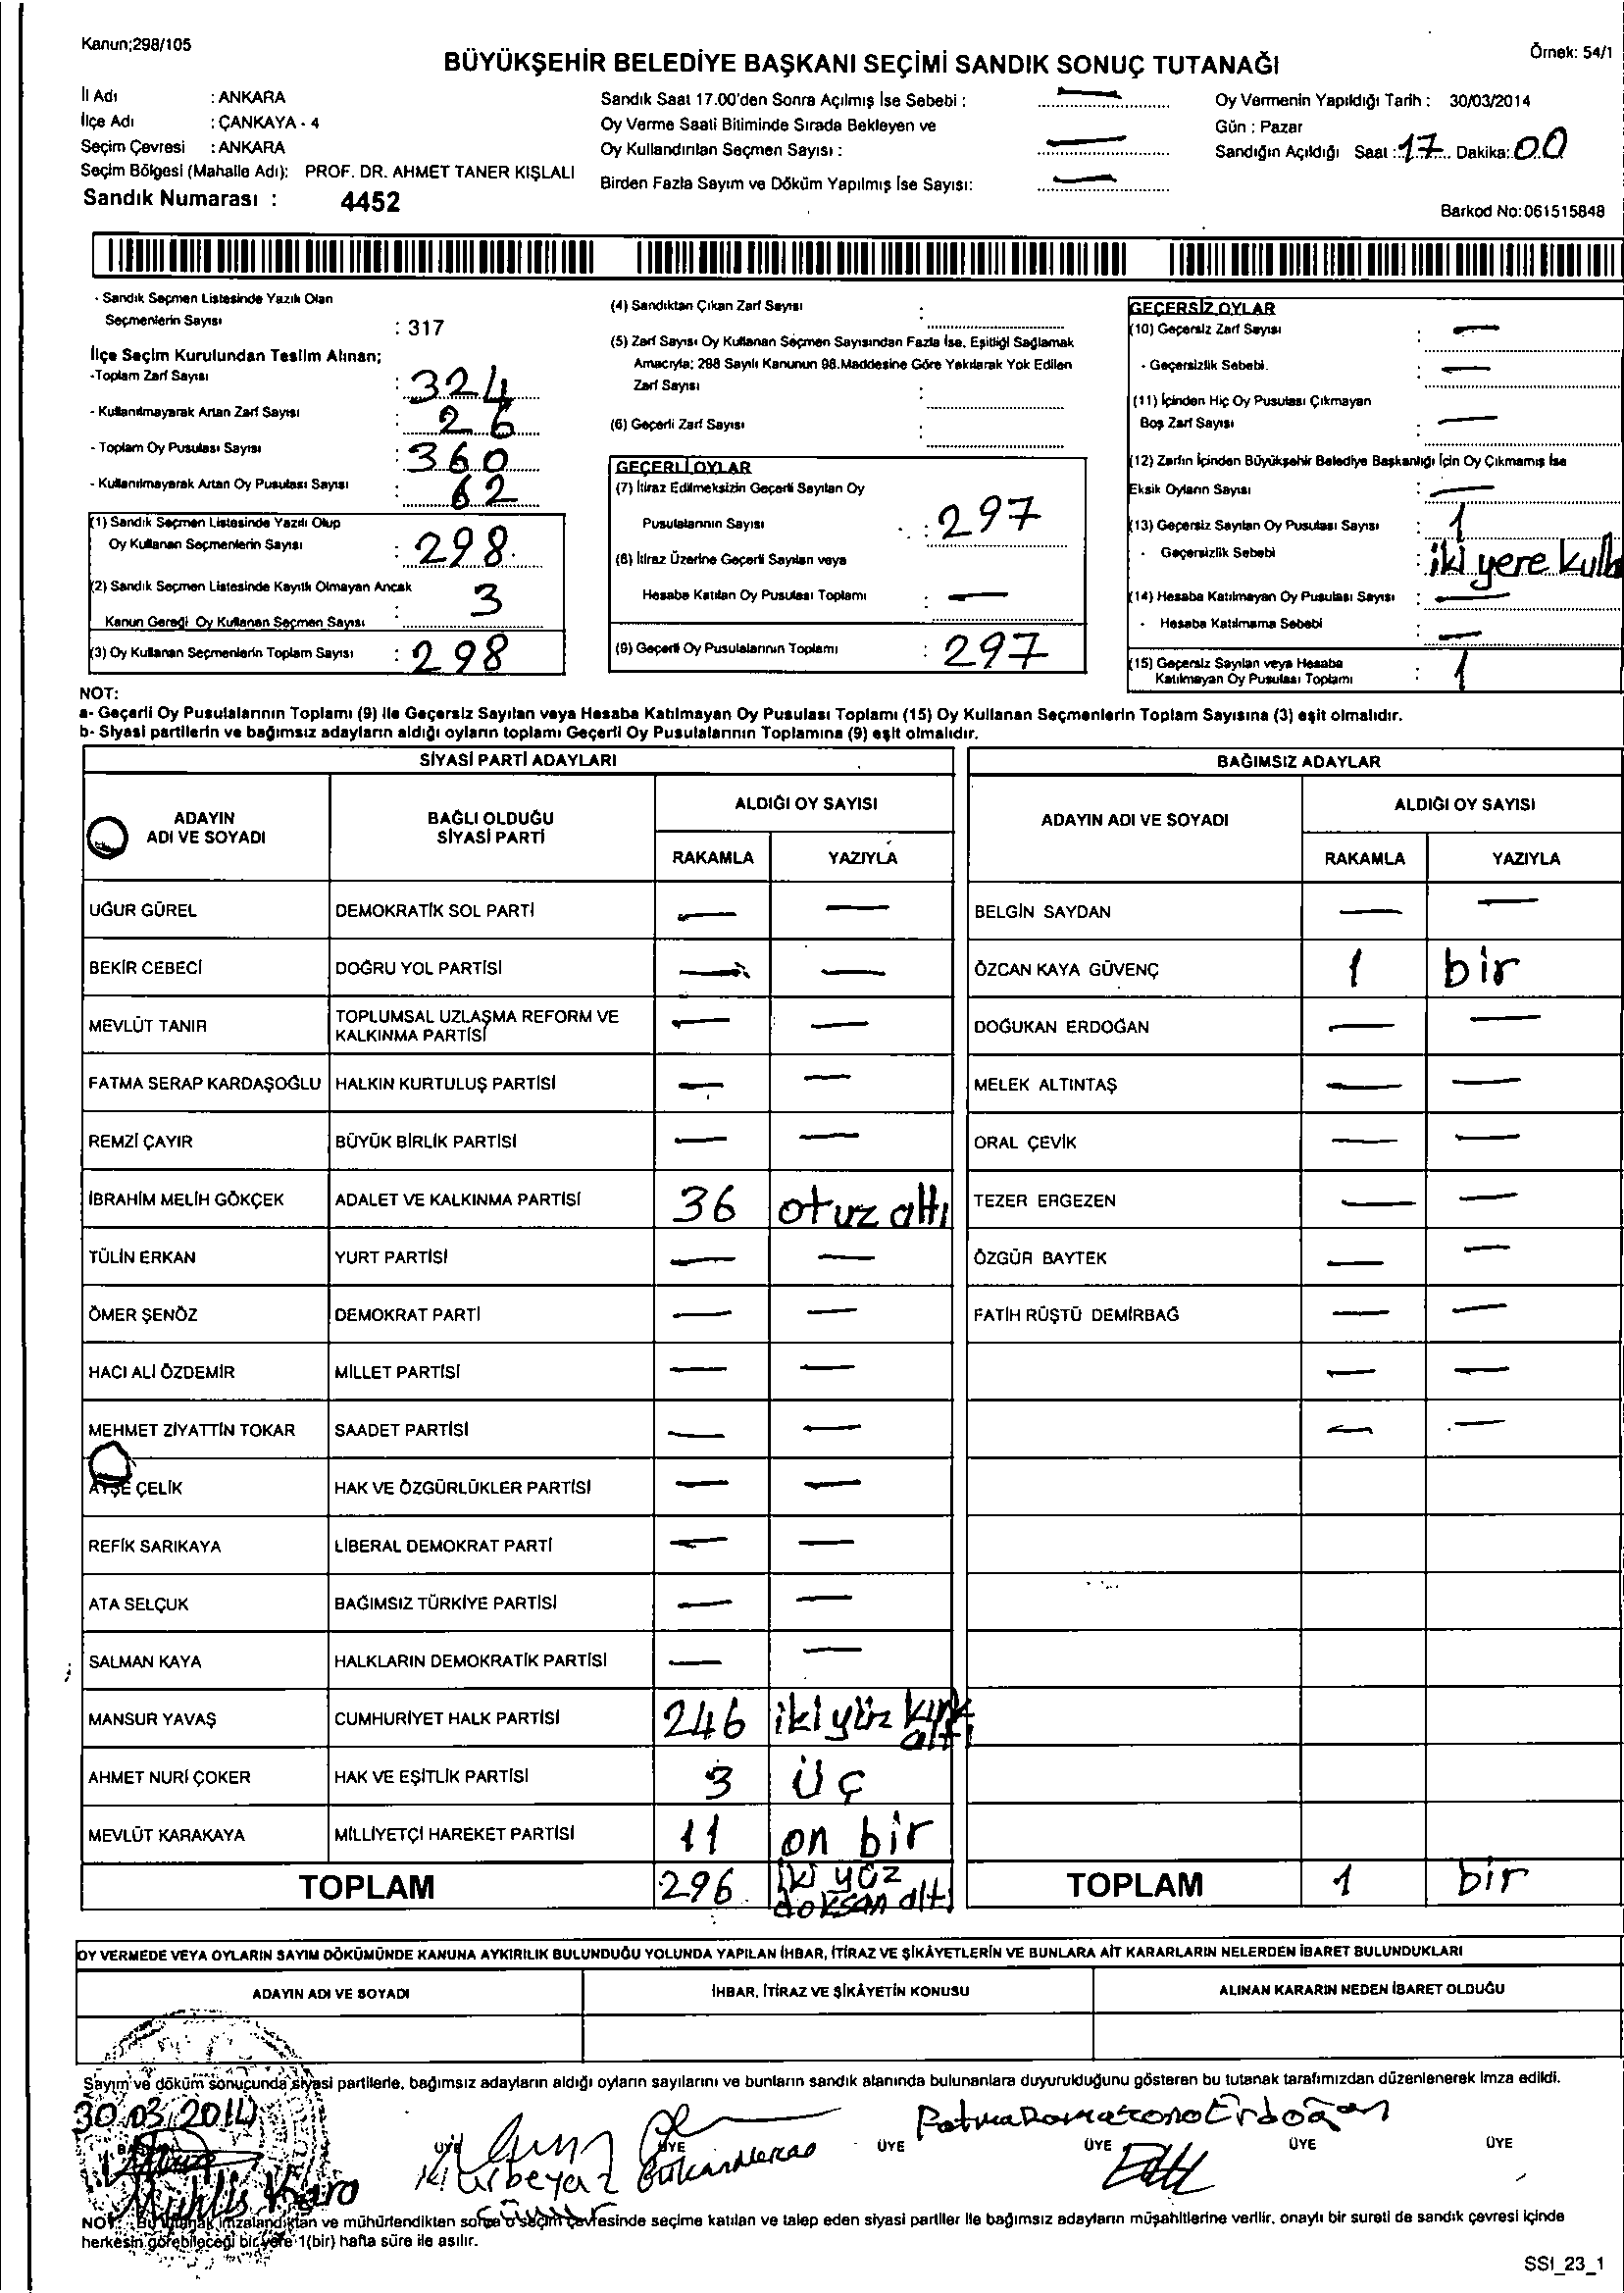 Kanun;298/105
Örnek: 54/1
BÜYÜKŞEHİR BELEDİYE BAŞKANI SEÇİMİ SANDIK SONUÇ TUTANAĞI
İl Adı : ANKARA
İlçe Adı : ÇANKAYA - 4
Seçim Çevresi : ANKARA
Seçim Bölgesi (Mahalle Adı): PROF. DR. AHMET TANER KIŞLALI
Sandık Numarası : 4452
Sandık Saat 17.00'den Sonra Açılmış İse Sebebi : —
Oy Verme Saati Bitiminde Sırada Bekleyen ve
Oy Kullandırılan Seçmen Sayısı : —
Birden Fazla Sayım ve Döküm Yapılmış İse Sayısı: —
Oy Vermenin Yapıldığı Tarih : 30/03/2014
Gün : Pazar
Sandığın Açıldığı Saat : 17 Dakika: 00
Barkod No:061515848
- Sandık Seçmen Listesinde Yazılı Olan
Seçmenlerin Sayısı : 317
İlçe Seçim Kurulundan Teslim Alınan;
-Toplam Zarf Sayısı : 324
- Kullanılmayarak Artan Zarf Sayısı : 26
- Toplam Oy Pusulası Sayısı : 360
- Kullanılmayarak Artan Oy Pusulası Sayısı : 62
(1) Sandık Seçmen Listesinde Yazılı Olup
Oy Kullanan Seçmenlerin Sayısı : 298
(2) Sandık Seçmen Listesinde Kayıtlı Olmayan Ancak
Kanun Gereği Oy Kullanan Seçmen Sayısı : 3
(3) Oy Kullanan Seçmenlerin Toplam Sayısı : 298
(4) Sandıktan Çıkan Zarf Sayısı :
(5) Zarf Sayısı Oy Kullanan Seçmen Sayısından Fazla İse, Eşitliği Sağlamak
Amacıyla; 298 Sayılı Kanunun 98.Maddesine Göre Yakılarak Yok Edilen
Zarf Sayısı :
(6) Geçerli Zarf Sayısı :
GEÇERLİ OYLAR
(7) İtiraz Edilmeksizin Geçerli Sayılan Oy
Pusulalarının Sayısı : 297
(8) İtiraz Üzerine Geçerli Sayılan veya
Hesaba Katılan Oy Pusulası Toplamı : —
(9) Geçerli Oy Pusulalarının Toplamı : 297
GEÇERSİZ OYLAR
(10) Geçersiz Zarf Sayısı : —
- Geçersizlik Sebebi. : —
(11) İçinden Hiç Oy Pusulası Çıkmayan
Boş Zarf Sayısı : —
(12) Zarfın İçinden Büyükşehir Belediye Başkanlığı İçin Oy Çıkmamış İse
Eksik Oyların Sayısı : —
(13) Geçersiz Sayılan Oy Pusulası Sayısı : 1
- Geçersizlik Sebebi : iki yere kulla
(14) Hesaba Katılmayan Oy Pusulası Sayısı : —
- Hesaba Katılmama Sebebi : —
(15) Geçersiz Sayılan veya Hesaba
Katılmayan Oy Pusulası Toplamı : 1
NOT:
a- Geçerli Oy Pusulalarının Toplamı (9) ile Geçersiz Sayılan veya Hesaba Katılmayan Oy Pusulası Toplamı (15) Oy Kullanan Seçmenlerin Toplam Sayısına (3) eşit olmalıdır.
b- Siyasi partilerin ve bağımsız adayların aldığı oyların toplamı Geçerli Oy Pusulalarının Toplamına (9) eşit olmalıdır.
SİYASİ PARTİ ADAYLARI
ADAYIN ADI VE SOYADI BAĞLI OLDUĞU SİYASİ PARTİ ALDIĞI OY SAYISI
RAKAMLA YAZIYLA
UĞUR GÜREL DEMOKRATİK SOL PARTİ — —
BEKİR CEBECİ DOĞRU YOL PARTİSİ — —
MEVLÜT TANIR TOPLUMSAL UZLAŞMA REFORM VE KALKINMA PARTİSİ — —
FATMA SERAP KARDAŞOĞLU HALKIN KURTULUŞ PARTİSİ — —
REMZİ ÇAYIR BÜYÜK BİRLİK PARTİSİ — —
İBRAHİM MELİH GÖKÇEK ADALET VE KALKINMA PARTİSİ 36 otuz altı
TÜLİN ERKAN YURT PARTİSİ — —
ÖMER ŞENÖZ DEMOKRAT PARTİ — —
HACI ALİ ÖZDEMİR MİLLET PARTİSİ — —
MEHMET ZİYATTİN TOKAR SAADET PARTİSİ — —
AYŞE ÇELİK HAK VE ÖZGÜRLÜKLER PARTİSİ — —
REFİK SARIKAYA LİBERAL DEMOKRAT PARTİ — —
ATA SELÇUK BAĞIMSIZ TÜRKİYE PARTİSİ — —
SALMAN KAYA HALKLARIN DEMOKRATİK PARTİSİ — —
MANSUR YAVAŞ CUMHURİYET HALK PARTİSİ 246 iki yüz kırk altı
AHMET NURİ ÇOKER HAK VE EŞİTLİK PARTİSİ 3 üç
MEVLÜT KARAKAYA MİLLİYETÇİ HAREKET PARTİSİ 11 on bir
TOPLAM 296 iki yüz doksan altı
BAĞIMSIZ ADAYLAR
ADAYIN ADI VE SOYADI ALDIĞI OY SAYISI
RAKAMLA YAZIYLA
BELGİN SAYDAN — —
ÖZCAN KAYA GÜVENÇ 1 bir
DOĞUKAN ERDOĞAN — —
MELEK ALTINTAŞ — —
ORAL ÇEVİK — —
TEZER ERGEZEN — —
ÖZGÜR BAYTEK — —
FATİH RÜŞTÜ DEMİRBAĞ — —
— —
— —
TOPLAM 1 bir
OY VERMEDE VEYA OYLARIN SAYIM DÖKÜMÜNDE KANUNA AYKIRILIK BULUNDUĞU YOLUNDA YAPILAN İHBAR, İTİRAZ VE ŞİKÂYETLERİN VE BUNLARA AİT KARARLARIN NELERDEN İBARET BULUNDUKLARI
ADAYIN ADI VE SOYADI İHBAR, İTİRAZ VE ŞİKÂYETİN KONUSU ALINAN KARARIN NEDEN İBARET OLDUĞU
Sayım ve döküm sonucunda siyasi partilerle, bağımsız adayların aldığı oyların sayılarını ve bunların sandık alanında bulunanlara duyurulduğunu gösteren bu tutanak tarafımızdan düzenlenerek imza edildi.
30.03.2014
Erdoğan
BAŞKAN ÜYE ÜYE ÜYE ÜYE ÜYE ÜYE
Muhlis Kara
NOT: Bu tutanak imzalandıktan ve mühürlendikten sonra o seçim çevresinde seçime katılan ve talep eden siyasi partiler ile bağımsız adayların müşahitlerine verilir, onaylı bir sureti de sandık çevresi içinde
herkesin görebileceği bir yere 1(bir) hafta süre ile asılır.
SSI_23_1